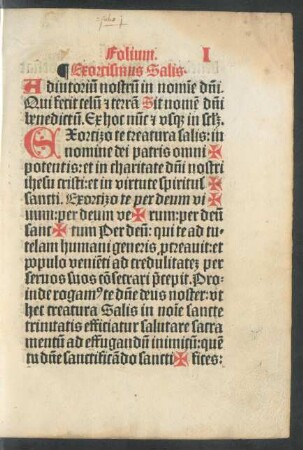 Folium. I
¶ Exorcismus Salis.
Adiutoriū nostrū in nomīe dn̄i.
Qui fecit celū ⁊ terrā Sit nomē dn̄i
benedictū. Ex hoc nūc ⁊ vsqꝫ in sclꝫ.
EXorcizo te creatura salis: in
nomine dei patris omni ✠
potentis: et in charitate dn̄i nostri
ihesu cristi: et in virtute spiritus ✠
sancti. Exorcizo te per deum vi ✠
uum: per deum ve ✠ rum: per deū
sanc ✠ tum Per deū: qui te ad tu-
telam humani generis ꝓcreauit: et
populo veniēti ad credulitateꝫ per
seruos suos cōsecrari p̄cepit. Pro-
inde rogamꝰ te dn̄e deus noster: vt
hec creatura Salis in noīe sancte
trinitatis efficiatur salutare sacra
mentū ad effugandū inimicū: quē
tu dn̄e sanctificādo sancti ✠ fices: